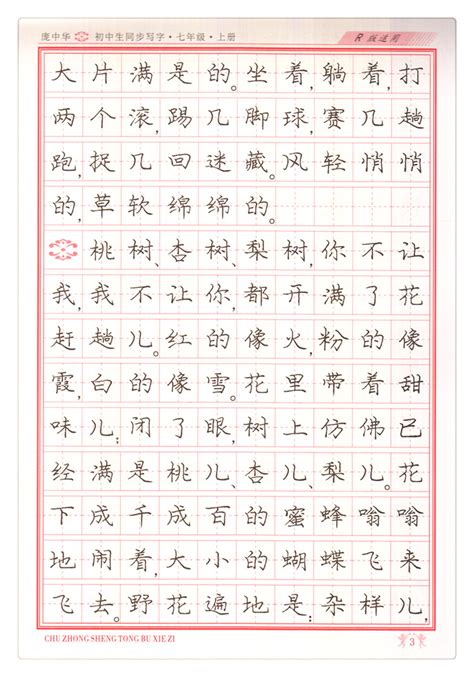 庞中华 初中生同步写字·七年级·上册 R 版适用
大片满是的。坐着,躺着,打
两个滚,踢几脚球,赛几趟
跑,捉几回迷藏。风轻悄悄
的,草软绵绵的。
桃树、杏树、梨树,你不让
我,我不让你,都开满了花
赶趟儿。红的像火,粉的像
霞,白的像雪。花里带着甜
味儿;闭了眼,树上仿佛已
经满是桃儿、杏儿、梨儿。花
下成千成百的蜜蜂嗡嗡
地闹着,大小的蝴蝶飞来
飞去。野花遍地是:杂样儿,
CHU ZHONG SHENG TONG BU XIE ZI 3